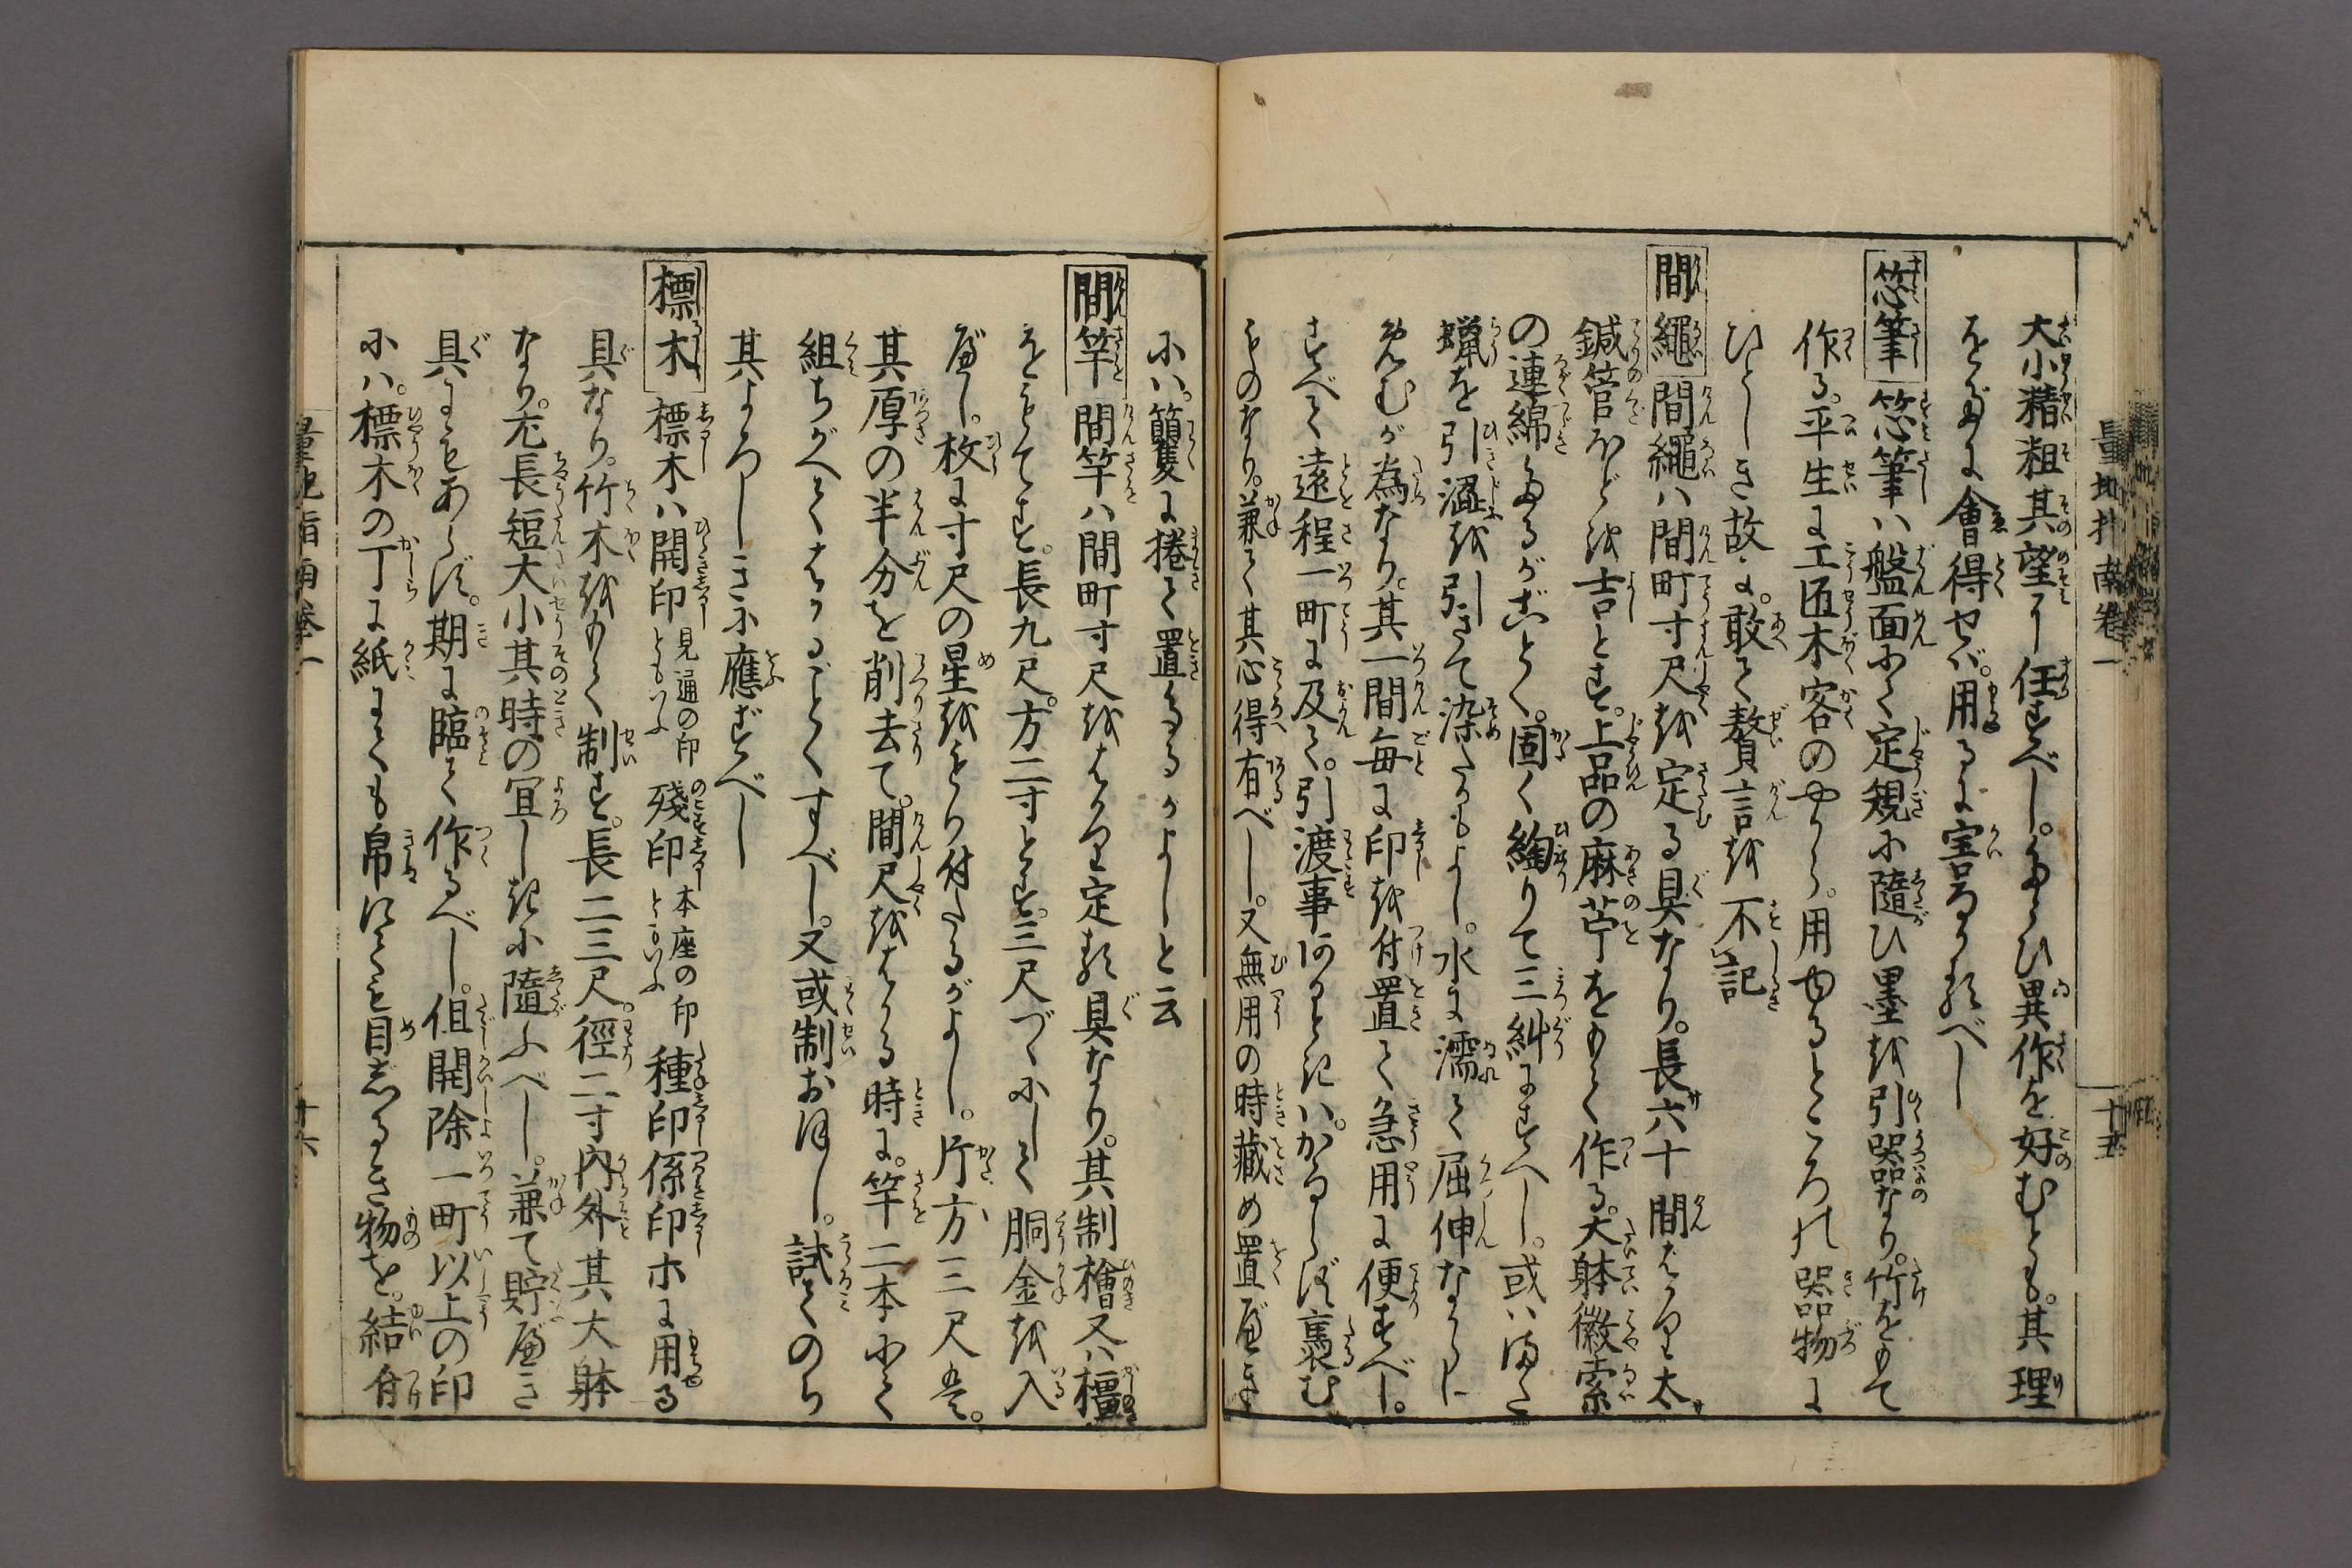 大小精粗其望に任すべし。たとひ異作を好むとも。其理
をだに會得せば。用るに害なかるべし
筆 筆ハ盤面にて定規に隨ひ墨を引器なり。竹をもて
作る。平生に工匠木客のやから。用ゆるところの器物に
ひとしき故に。敢て贅言を不記
間繩 間繩ハ間町寸尺を定る具なり。長六十間ばかり太
鍼管ほどを吉とす。上品の麻苧をもて作る。大躰徽索
の連綿たるがごとく。固く綯りて三糾にすべし。或ハまた
蝋を引澀を引きて染たるもよし。水に濡て屈伸なからし
めんむが為なり。其一間毎に印を付置て急用に便すべし。
すべて遠程一町に及て。引渡事あるときハ。かならず裹む
ものなり。兼て其心得有べし。又無用の時藏め置べき
量地指南卷一
十五
にハ。籰に捲て置たるがよしと云
間竿 間竿ハ間町寸尺をはかり定る具なり。其制檜又ハ橿
をもてす。長九尺。方二寸とす。三尺づゝにして胴金を入
べし。枚に寸尺の星をもり付たるがよし。片方三尺は。
其厚の半分を削去て。間尺をはかる時に。竿二本にて
組ちがへてはかるごとくすべし。又或制おほし。試てのち
其よろしきに應ずべし
標木 標木ハ開印見通の印ともいふ 殘印本座の印ともいふ 種印係印ホに用る
具なり。竹木をもて制す。長二三尺。徑二寸内外其大躰
なり。尤長短大小其時の宜しきに隨ふべし。兼て貯べき
具にもあらず。期に臨て作るべし。但開除一町以上の印
にハ。標木の丁に紙にても帛にても目じるき物を。結付
量地指南卷一
十六